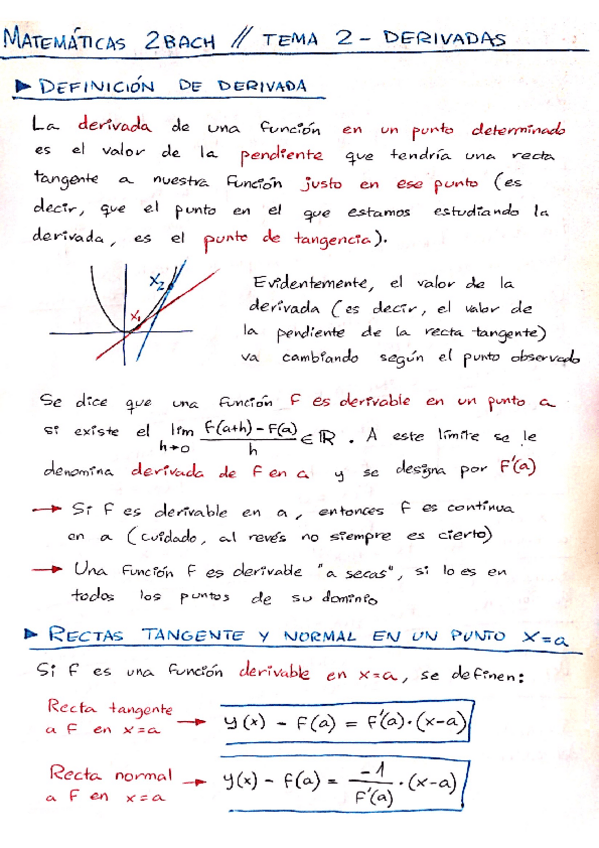 MATEMÁTICAS 2BACH // TEMA 2 - DERIVADAS
► DEFINICIÓN DE DERIVADA
La derivada de una función en un punto determinado
es el valor de la pendiente que tendría una recta
tangente a nuestra función justo en ese punto (es
decir, que el punto en el que estamos estudiando la
derivada, es el punto de tangencia).
x₂
x₁
Evidentemente, el valor de la
derivada (es decir, el valor de
la pendiente de la recta tangente)
va cambiando según el punto observado
Se dice que una función f es derivable en un punto a
si existe el lim h→0 (f(a+h) - f(a))/h ∈ ℝ. A este límite se le
denomina derivada de f en a y se designa por f'(a)
→ Si f es derivable en a, entonces f es continua
en a (cuidado, al revés no siempre es cierto)
→ Una función f es derivable "a secas", si lo es en
todos los puntos de su dominio
► RECTAS TANGENTE Y NORMAL EN UN PUNTO X=a
Si f es una función derivable en x=a, se definen:
Recta tangente
a f en x=a → y(x) - f(a) = f'(a)·(x-a)
Recta normal
a f en x=a → y(x) - f(a) = -1/f'(a) ·(x-a)